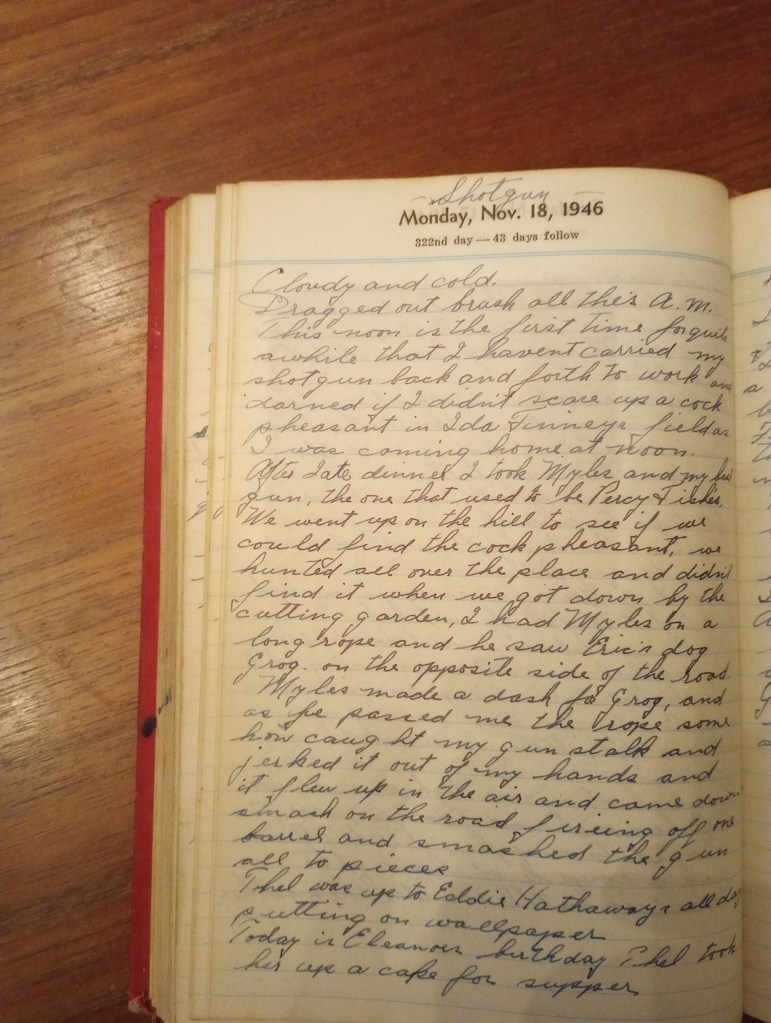 - Shotgun -
Monday, Nov. 18, 1946
322nd day — 43 days follow
Cloudy and cold.
Dragged out brush all this A.M.
This noon is the first time for quite
awhile that I havent carried my
shotgun back and forth to work and
darned if I didn't scare up a cock
pheasant in Ida Finneys field as
I was coming home at noon.
After late dinner I took Myles and my best
gun, the one that used to be Percy Fishes,
We went up on the hill to see if we
could find the cock pheasant, we
hunted all over the place and didn't
find it when we got down by the
cutting garden, I had Myles on a
long rope and he saw Eric's dog
Grog. on the opposite side of the road.
Myles made a dash for Grog, and
as he passed me the rope some
how caught my gun stalk and
jerked it out of my hands and
it flew up in the air and came down
smash on the road fireing off one
barrel and smashed the gun
all to pieces
Thel was up to Eddie Hathaways all day
putting on wallpaper
Today is Eleanors birthday Thel took
her up a cake for supper